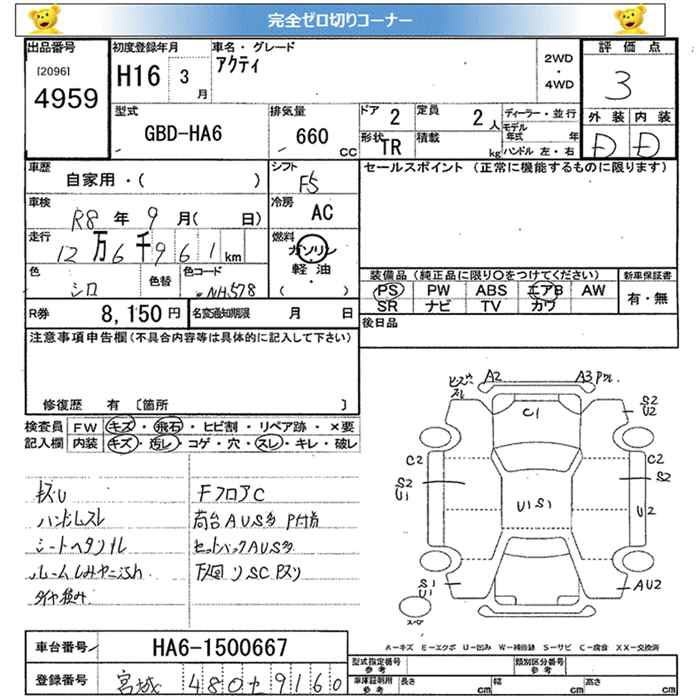 完全ゼロ切りコーナー
出品番号
[2096]
4959
初度登録年月
H16 3 月
車名・グレード
アクティ
2WD
・
4WD
評価点
3
外装 内装
D D
型式
GBD-HA6
排気量
660 CC
ドア 2
定員 2 人
形状 TR
積載 kg
ディーラー・並行
モデル年式 年
ハンドル 左・右
車歴
自家用・( )
シフト
F5
セールスポイント (正常に機能するものに限ります)
車検
R8 年 9 月( 日)
冷房
AC
走行
12 万 6 千 9 6 1 km
燃料
ガソリン
軽油
( )
色
シロ
色替
色カラーコード
NH578
装備品 (純正品に限り○をつけてください)
新車保証書
PS PW ABS エアB AW
有・無
SR ナビ TV カワ
R券 8,150 円
名変通知期限 月 日
後日品
注意事項申告欄(不具合内容等は具体的に記入して下さい)
修復歴 有 〔箇所 〕
検査員記入欄
FW キズ・飛石・ヒビ割・リペア跡・×要
内装 キズ・汚レ・コゲ・穴・スレ・キレ・破レ
キズU
ハンドルスレ
シートヘタリナレ
FフロアC
荷台AUS多
セットバックAUS多
A2 A3
C1
S2
U2
C2
S2
U1
C2
S2
U2
U1S1
S1
U1
AU2
スペア
A=キズ E=エクボ U=凹み W=補修跡 S=サビ C=腐食 XX=交換済
車台番号
HA6-1500667
登録番号
宮城 480 た 9160
型式指定番号
参考
類別区分番号
参考
車庫証明用
参考
長さ cm
幅 cm
高さ cm